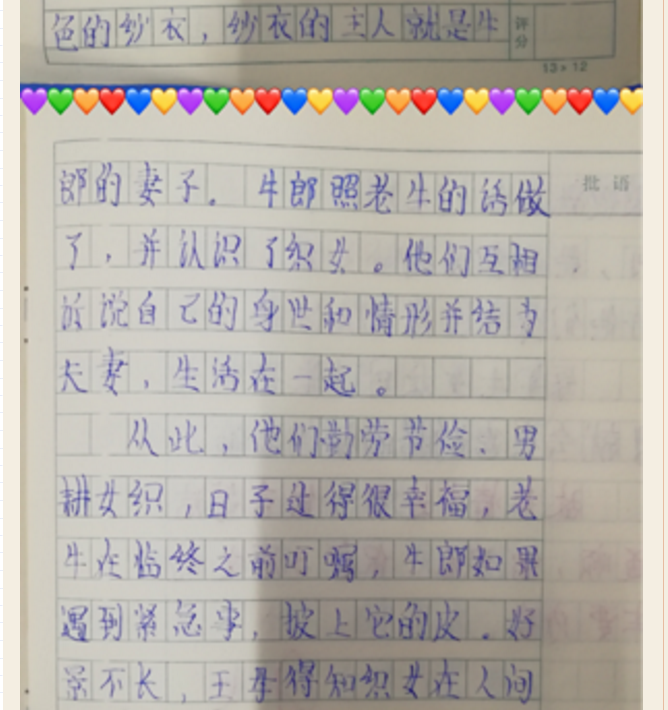 色的纱衣，纱衣的主人就是牛
评分
13×12
郎的妻子。牛郎照老牛的话做
批语
了，并认识了织女。他们互相
诉说自己的身世和情形并结为
夫妻，生活在一起。
从此，他们勤劳节俭、男
耕女织，日子过得很幸福，老
牛在临终之前叮嘱，牛郎如果
遇到紧急事，披上它的皮。好
景不长，王母得知织女在人间